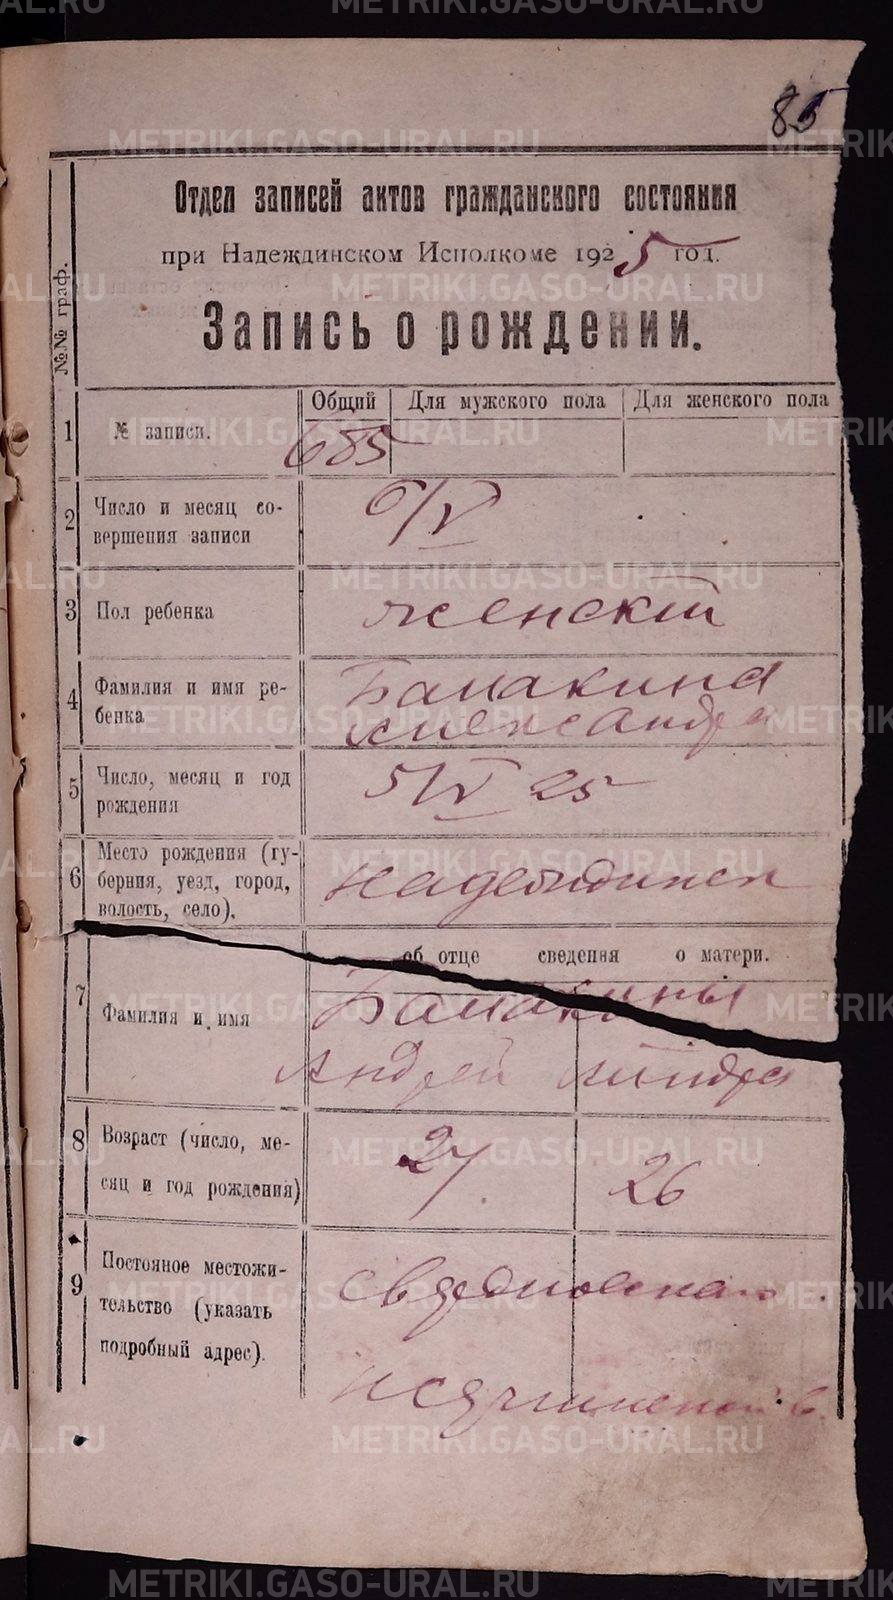 METRIKI.GASO-URAL.RU
85
Отдел записей актов гражданского состояния
при Надеждинском Исполкоме 1925 год.
Запись о рождении.
№№ граф.
Общий Для мужского пола Для женского пола
1 № записи. 685
2 Число и месяц со-
вершения записи
6/V
3 Пол ребенка женский
4 Фамилия и имя ре-
бенка
Балакина
Александра
5 Число, месяц и год
рождения
5/V 25
6 Место рождения (гу-
берния, уезд, город,
волость, село).
Надеждинск
об отце сведения о матери.
7 Фамилия и имя
Балакины
Андрей
8 Возраст (число, ме-
сяц и год рождения)
27 26
9 Постояное местожи-
тельство (указать
подробный адрес).